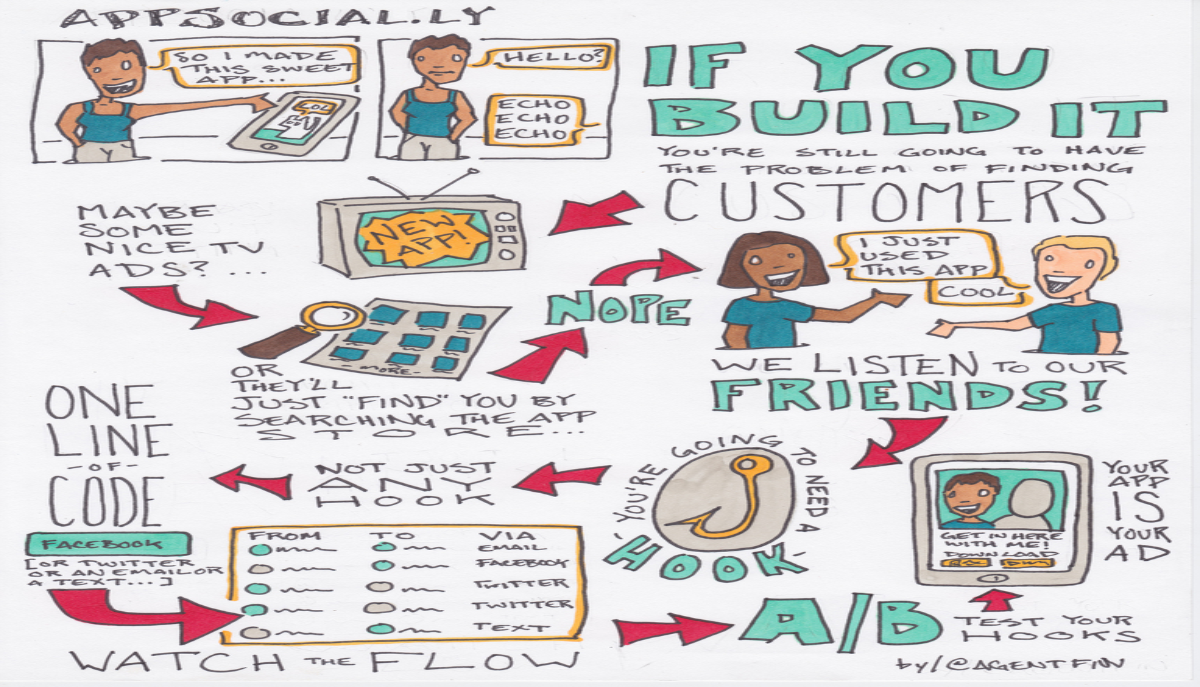 APPSOCIAL.LY
SO I MADE
THIS SWEET
APP...
LOL
HELLO?
ECHO
ECHO
ECHO
IF YOU
BUILD IT
YOU'RE STILL GOING TO HAVE
THE PROBLEM OF FINDING
CUSTOMERS
MAYBE
SOME
NICE TV
ADS? ...
NEW
APP!
-MORE-
OR
THEY'LL
JUST "FIND" YOU BY
SEARCHING THE APP
STORE...
NOPE
I JUST
USED
THIS APP
COOL
WE LISTEN TO OUR
FRIENDS!
YOU'RE GOING TO NEED A
HOOK
NOT JUST
ANY
HOOK
ONE
LINE
-OF-
CODE
FACEBOOK
[OR TWITTER
OR AN EMAIL OR
A TEXT...]
FROM TO VIA
EMAIL
FACEBOOK
TWITTER
TWITTER
TEXT
WATCH THE FLOW
A/B TEST YOUR
HOOKS
GET IN HERE
WITH ME!
DOWNLOAD
YOUR
APP
IS
YOUR
AD
by/@AGENTFIN